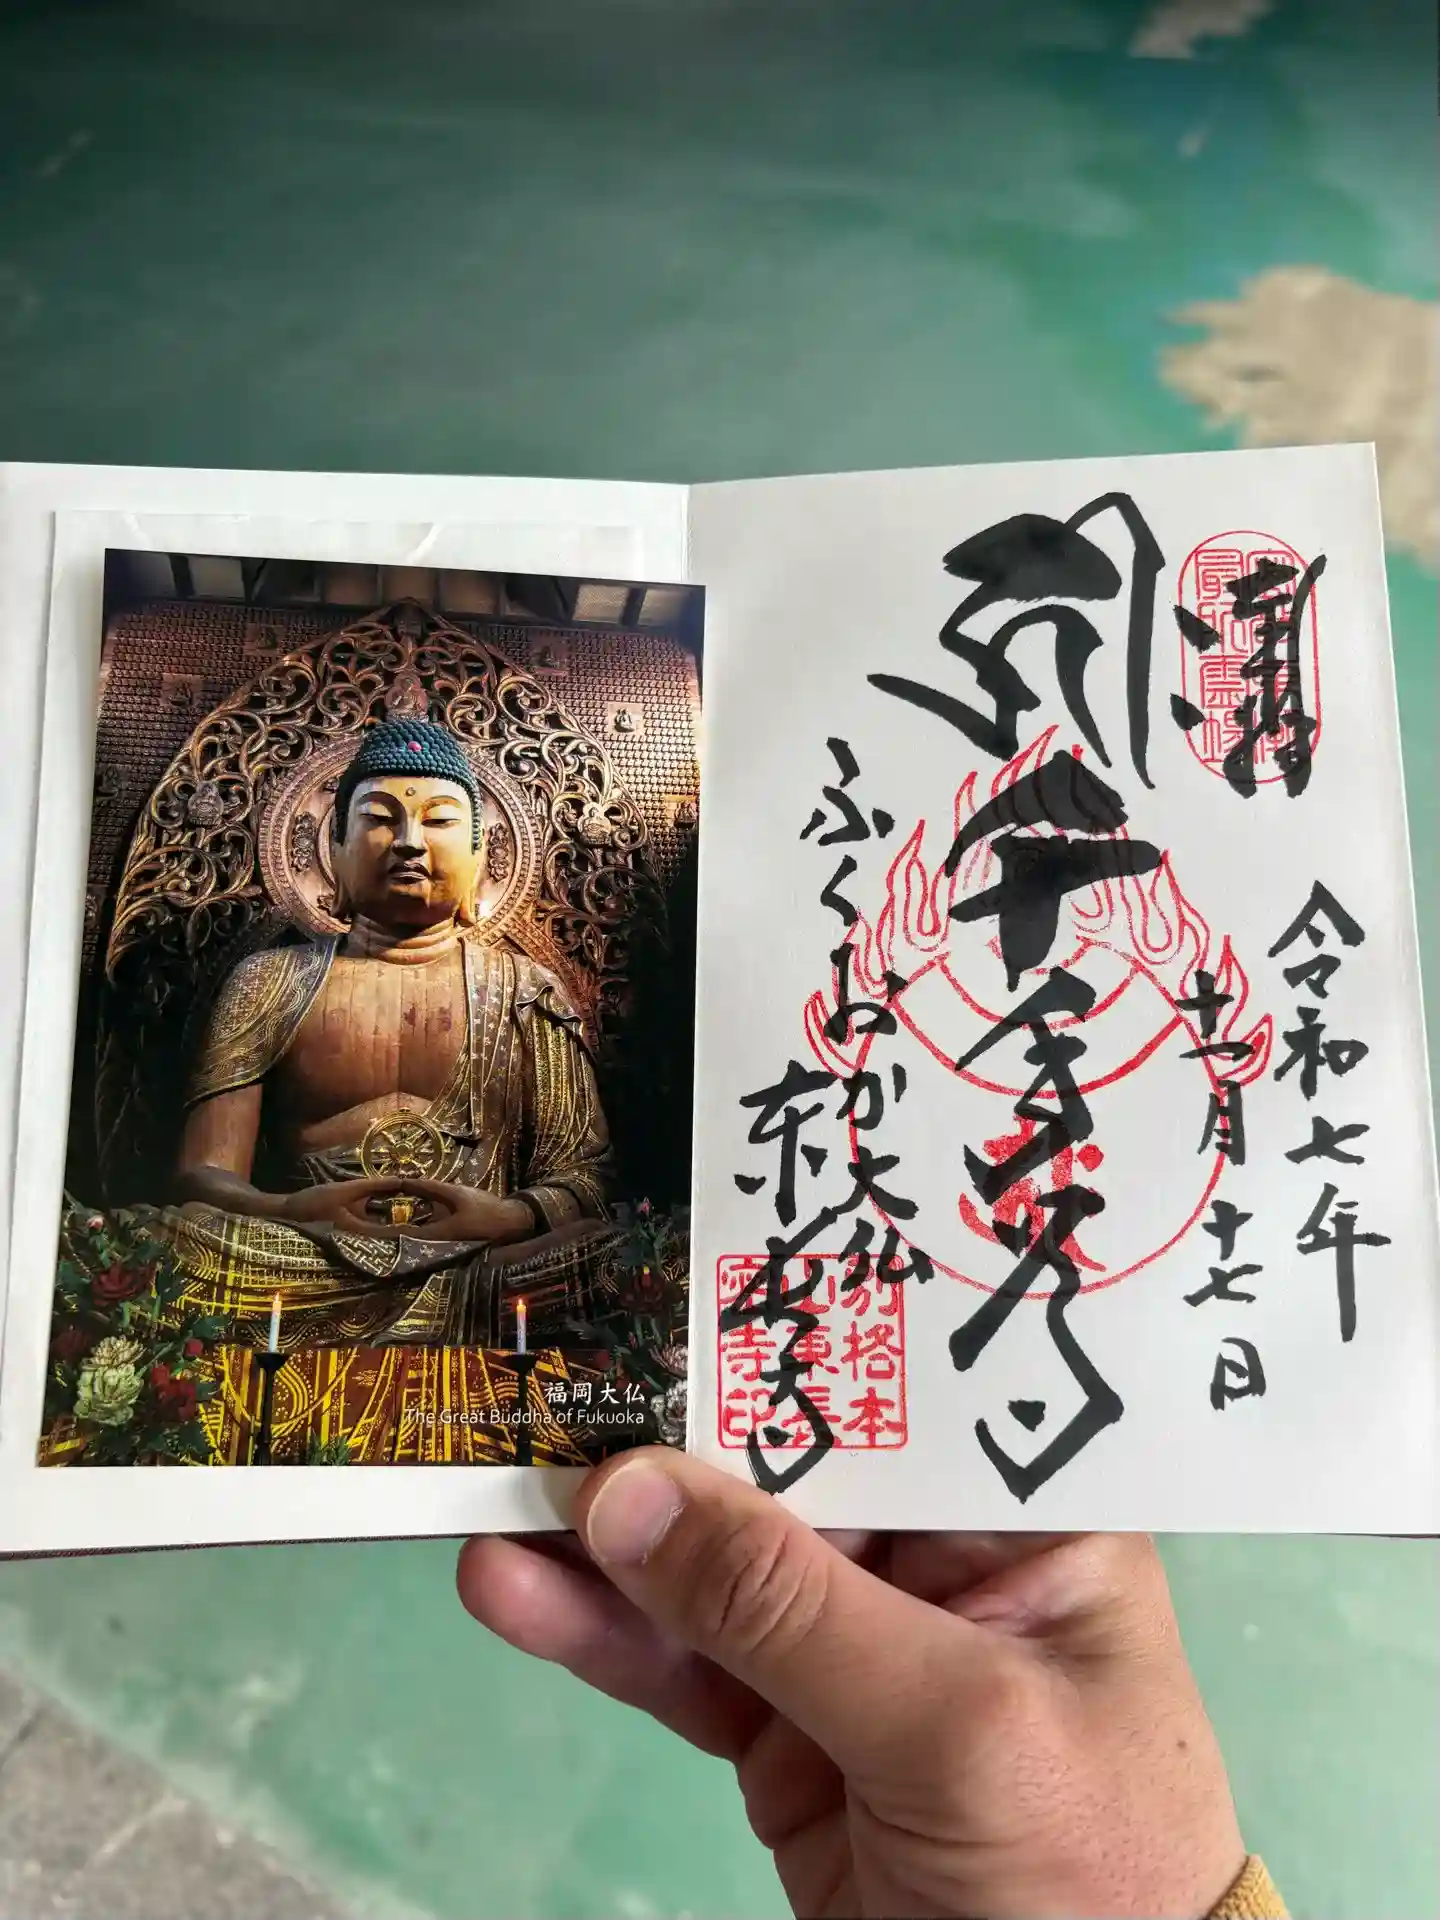 福岡大仏
The Great Buddha of Fukuoka
令和七年
十一月十七日
千手
ふくおか大仏
東長寺
別格本
山東長
密寺印